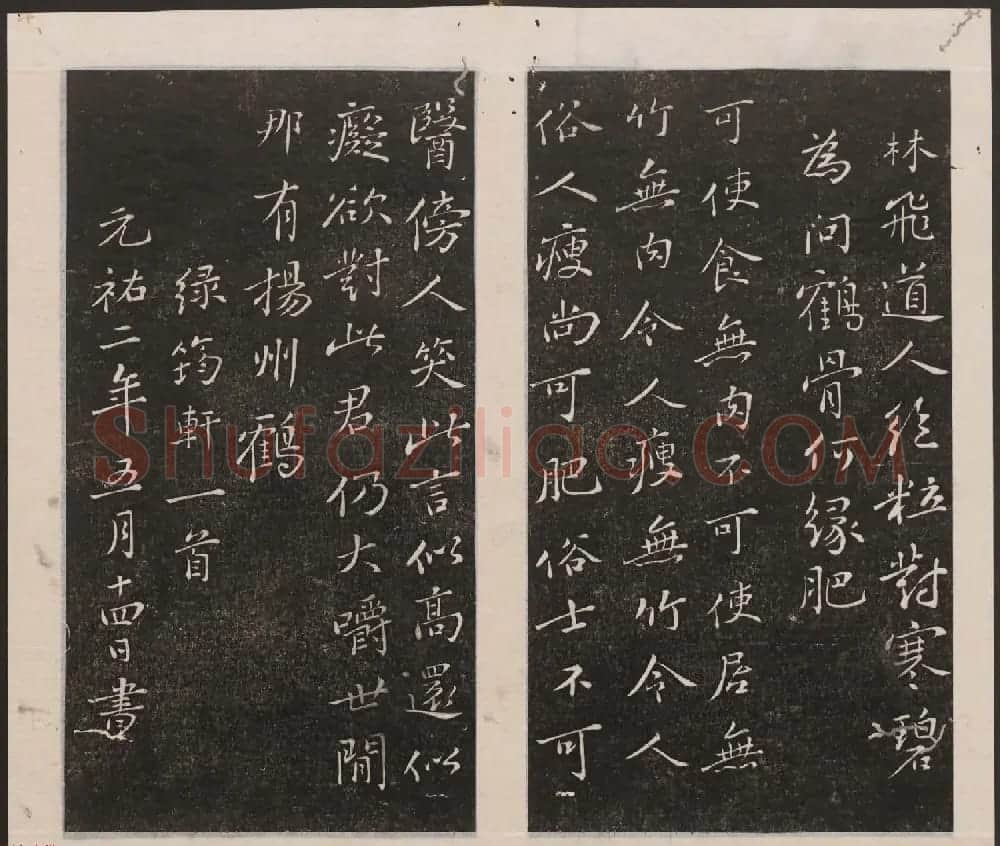 林飛道人絕粒對寒碧
為問鶴骨何緣肥
可使食無肉不可使居無
竹無肉令人瘦無竹令人
俗人瘦尚可肥俗士不可
醫傍人笑此言似高還似
癡欲對此君仍大嚼世間
那有揚州鶴
緑筠軒一首
元祐二年五月十四日書
Shufaziliao.COM